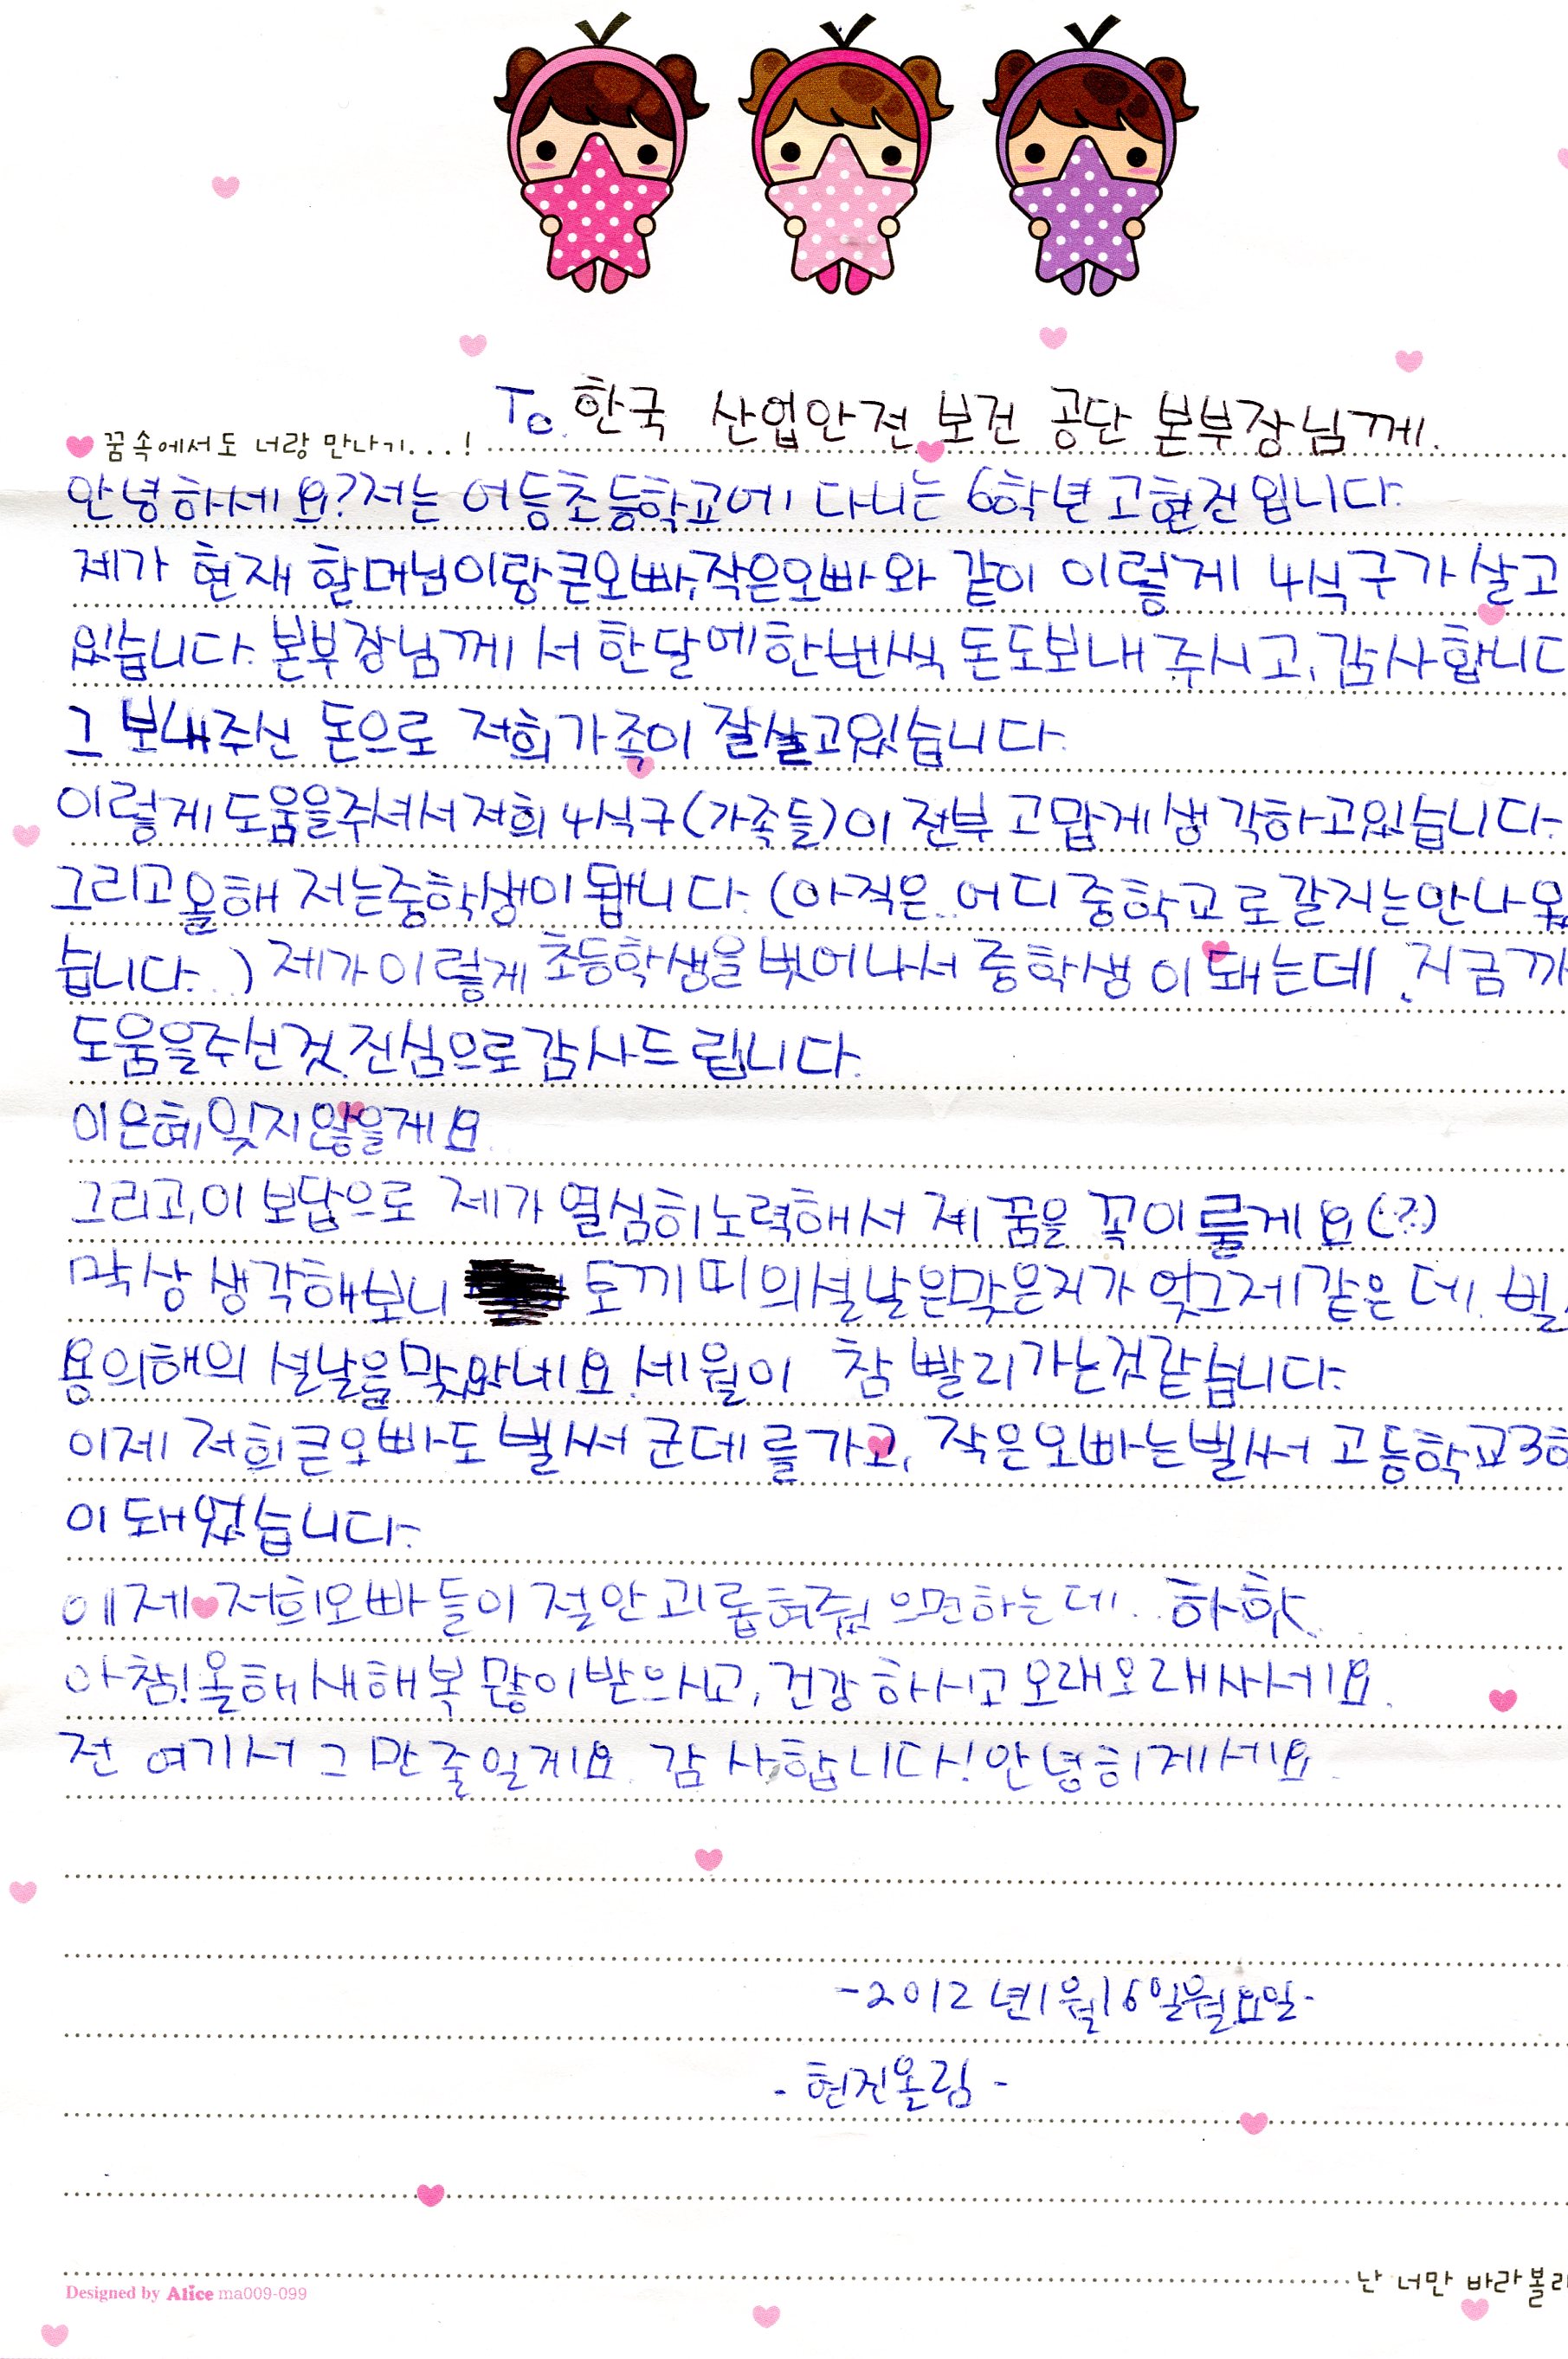 To. 한국 산업안전 보건 공단 본부장님께.
꿈속에서도 너랑 만나기...!
안녕하세요? 저는 어등초등학교에 다니는 6학년 고현진입니다.
제가 현재 할머님이랑 큰오빠, 작은오빠와 같이 이렇게 4식구가 살고
있습니다. 본부장님께서 한달에 한번씩 돈도 보내 주시고, 감사합니다
그 보내주신 돈으로 저희가족이 잘살고있습니다.
이렇게 도움을주셔서 저희 4식구(가족들)이 전부 고맙게 생각하고있습니다.
그리고 올해 저는중학생이 됩니다. (아직은.. 어디 중학교로 갈지는 안나왔
습니다..) 제가 이렇게 초등학생을 벗어나서 중학생이 돼는데, 지금까
도움을주신것 진심으로 감사드립니다.
이은혜잊지않을게요.
그리고, 이 보답으로 제가 열심히노력해서 제 꿈을 꼭이룰게요(?)
막상 생각해보니 토끼띠의설날은맞은지가 엊그제같은데, 벌
용의해의 설날을맞았네요. 세월이 참 빨리가는것같습니다.
이제 저희큰오빠도 벌써 군데를가고, 작은오빠는벌써 고등학교3학
이돼었습니다.
이제 저희오빠들이 절안괴롭혀줬으면하는데.. 하핫
아참! 올해새해복 많이받으시고, 건강하시고 오래오래사세요.
전 여기서 그만줄일게요. 감사합니다! 안녕히계세요.
-2012년1월16일월요일-
- 현진올림 -
난 너만 바라볼래
Designed by Alice ma009-099